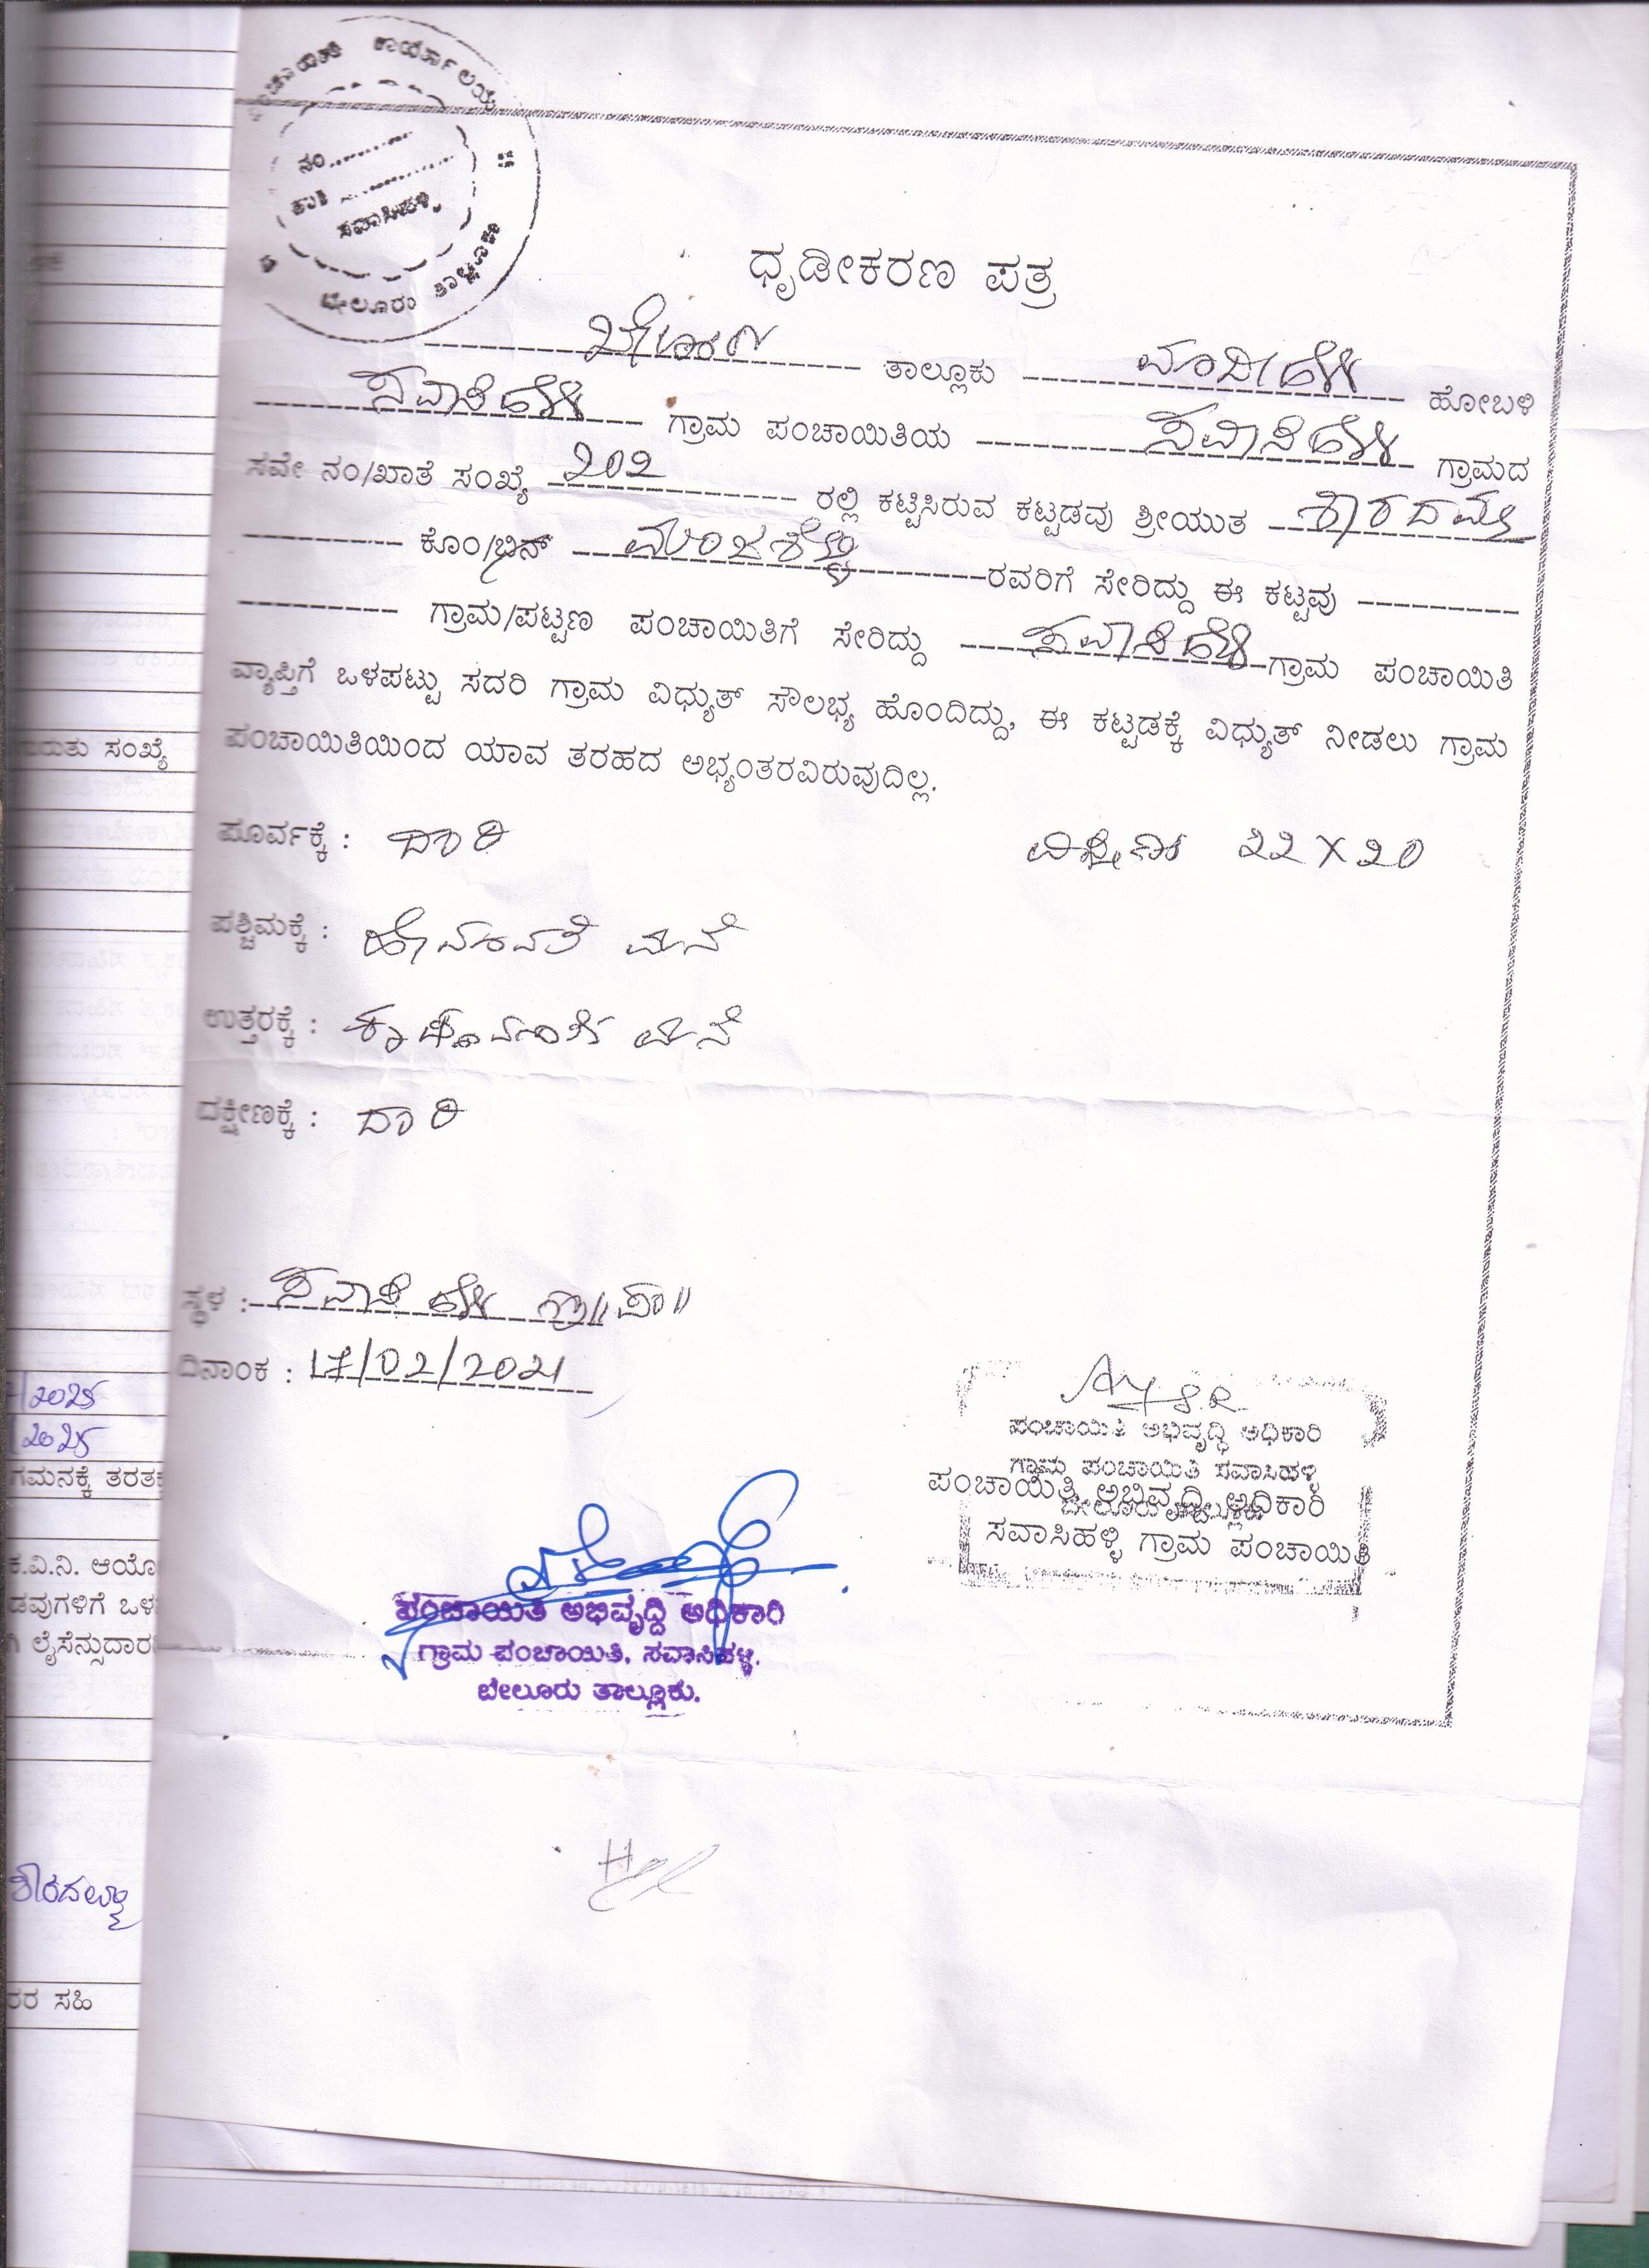 ಕಾರ್ಯಾಲಯ
ನಂ
ಸವಾಸಿಹಳ್ಳಿ
ಬೇಲೂರು ತಾಲ್ಲೂಕು
ಧೃಡೀಕರಣ ಪತ್ರ
ಬೇಲೂರು ತಾಲ್ಲೂಕು ಮಾದೀಹಳ್ಳಿ ಹೋಬಳಿ
ಸವಾಸಿಹಳ್ಳಿ ಗ್ರಾಮ ಪಂಚಾಯಿತಿಯ ಸವಾಸಿಹಳ್ಳಿ ಗ್ರಾಮದ
ಸವೇ ನಂ/ಖಾತೆ ಸಂಖ್ಯೆ 202 ರಲ್ಲಿ ಕಟ್ಟಿಸಿರುವ ಕಟ್ಟಡವು ಶ್ರೀಯುತ ಶಾರದಮ್ಮ
ಕೊಂ/ಭಿನ್ ಮಂಜಶೆಟ್ಟಿ ರವರಿಗೆ ಸೇರಿದ್ದು ಈ ಕಟ್ಟವು
ಗ್ರಾಮ/ಪಟ್ಟಣ ಪಂಚಾಯಿತಿಗೆ ಸೇರಿದ್ದು ಸವಾಸಿಹಳ್ಳಿ ಗ್ರಾಮ ಪಂಚಾಯಿತಿ
ವ್ಯಾಪ್ತಿಗೆ ಒಳಪಟ್ಟು ಸದರಿ ಗ್ರಾಮ ವಿಧ್ಯುತ್ ಸೌಲಭ್ಯ ಹೊಂದಿದ್ದು, ಈ ಕಟ್ಟಡಕ್ಕೆ ವಿಧ್ಯುತ್ ನೀಡಲು ಗ್ರಾಮ
ಪಂಚಾಯಿತಿಯಿಂದ ಯಾವ ತರಹದ ಅಭ್ಯಂತರವಿರುವುದಿಲ್ಲ.
ಪೂರ್ವಕ್ಕೆ : ದಾರಿ
ವಿಸ್ತೀರ್ಣ 22 X 20
ಪಶ್ಚಿಮಕ್ಕೆ : ಮನೆ
ಉತ್ತರಕ್ಕೆ : ಮನೆ
ದಕ್ಷೀಣಕ್ಕೆ : ದಾರಿ
ಸ್ಥಳ : ಸವಾಸಿಹಳ್ಳಿ ಗ್ರಾ|| ಪಂ||
ದಿನಾಂಕ : 17/02/2021
ಪಂಚಾಯಿತಿ ಅಭಿವೃದ್ಧಿ ಅಧಿಕಾರಿ
ಗ್ರಾಮ ಪಂಚಾಯಿತಿ ಸವಾಸಿಹಳ್ಳಿ
ಪಂಚಾಯಿತಿ ಅಭಿವೃದ್ಧಿ ಅಧಿಕಾರಿ
ಸವಾಸಿಹಳ್ಳಿ ಗ್ರಾಮ ಪಂಚಾಯಿತಿ
ಪಂಚಾಯಿತಿ ಅಭಿವೃದ್ಧಿ ಅಧಿಕಾರಿ
ಗ್ರಾಮ ಪಂಚಾಯಿತಿ, ಸವಾಸಿಹಳ್ಳಿ.
ಬೇಲೂರು ತಾಲ್ಲೂಕು.
ಸಂಖ್ಯೆ
/2025
/2025
ಗಮನಕ್ಕೆ
ಕ.ವಿ.ನಿ. ಆಯೋ
ಡವುಗಳಿಗೆ ಒಳ
ಲೈಸೆನ್ಸುದಾರ
ಶಾರದಮ್ಮ
ರರ ಸಹಿ